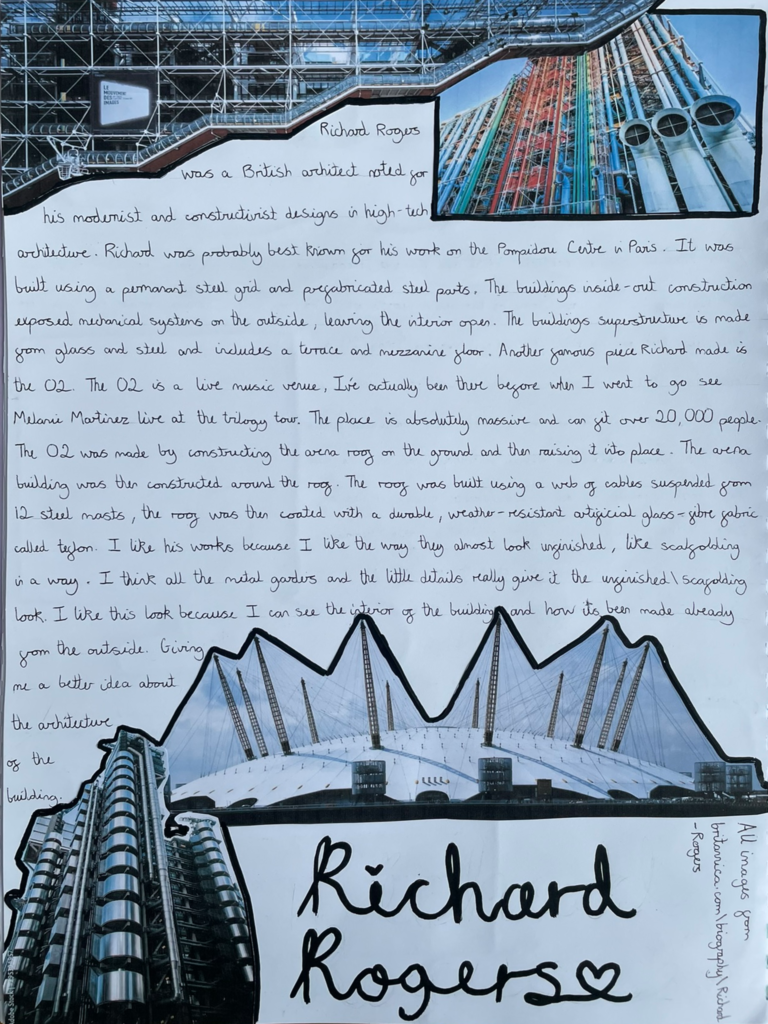 LE
MOUVEMENT
DES
IMAGES
Richard Rogers
was a British architect noted for
his modernist and constructivist designs in high-tech
architecture. Richard was probably best known for his work on the Pompidou Centre in Paris. It was
built using a permanant steel grid and prefabricated steel parts. The buildings inside-out construction
exposed mechanical systems on the outside, leaving the interior open. The buildings superstructure is made
from glass and steel and includes a terrace and mezzanine floor. Another famous piece Richard made is
the O2. The O2 is a live music venue, I've actually been there before when I went to go see
Melanie Martinez live at the trilogy tour. The place is absolutely massive and can fit over 20,000 people.
The O2 was made by constructing the arena roof on the ground and then raising it into place. The arena
building was then constructed around the roof. The roof was built using a web of cables suspended from
12 steel masts, the roof was then coated with a durable, weather-resistant artificial glass-fibre fabric
called teflon. I like his works because I like the way they almost look unfinished, like scaffolding
in a way. I think all the metal garders and the little details really give it the unfinished\scaffolding
look. I like this look because I can see the interior of the building and how its been made already
from the outside. Giving
me a better idea about
the architecture
of the
building.
Richard
Rogers
All images from
britannica.com\biography\Richard
-Rogers